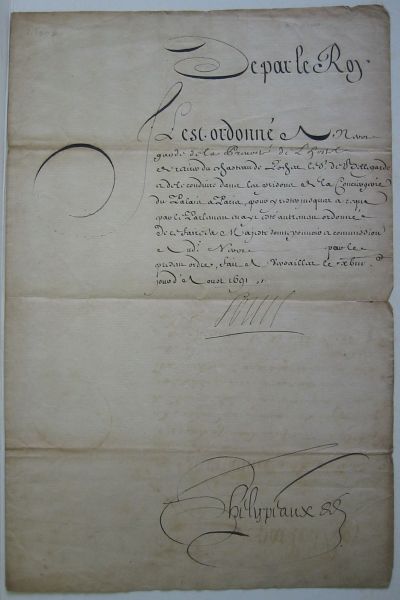 De par le Roy.
Il est ordonné A
garde de la Prevosté de L'hostel
du chasteau de Loches le Sr. de
a de le conduire dans la prison de la Conciergerie
du Palais a Paris, pour y rester jusques a ce que
par le Parlement en ayt esté autrement ordonné
de ce faire sa Majesté donne pouvoir et commission
Aud. par le
present ordre, fait A Versailles le
jour d'Aoust 1691
Louis
Phelypeaux